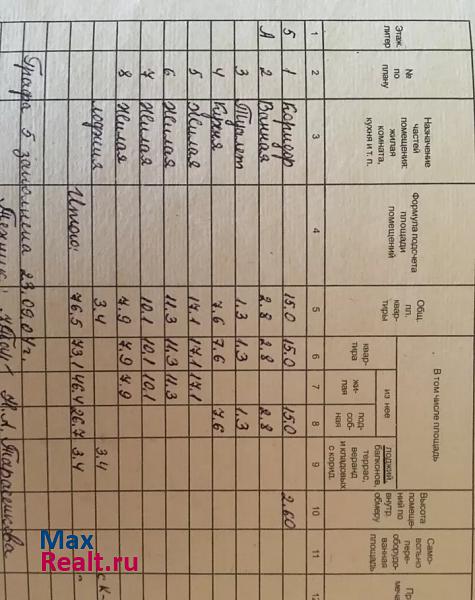 Этаж. литер
№ по плану
Назначение частей помещения: жилая комната, кухня и т. п.
Формула подсчета площади помещений
Общ. пл. квар- тиры
В том числе площадь
квар- тира
из нее
жи- лая
под- соб- ная
лоджий, балконов, террас, веранд и кладовых с корид.
Высота помеще- ний по внутр. обмеру
Само- вольно пере- оборудо- ванная площадь
1 2 3 4 5 6 7 8 9 10 11 12
5 1 Коридор 15.0 15.0 15.0 2.60
А 2 Ванная 2.8 2.8 2.8
3 Туалет 1.3 1.3 1.3
4 Кухня 7.6 7.6 7.6
5 Жилая 17.1 17.1 17.1
6 Жилая 11.3 11.3 11.3
7 Жилая 10.1 10.1 10.1
8 Жилая 7.9 7.9 7.9
лоджия 3.4 3.4
Итого: 76.5 73.1 46.4 26.7 3.4
Графа 5 заполнена 23.09.04г.
Max
Realt.ru